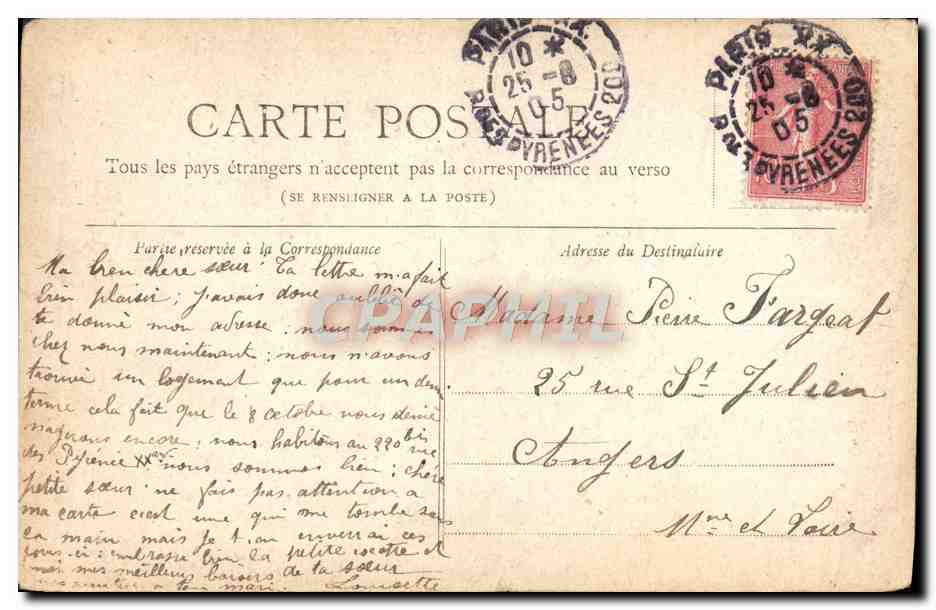 PARIS XX
10 *
25 -8
05
R. DES PYRENEES 200
PARIS XX
10 *
25 -8
05
R. DES PYRENEES 200
CARTE POSTALE
Tous les pays étrangers n'acceptent pas la correspondance au verso
(SE RENSEIGNER A LA POSTE)
Partie réservée à la Correspondance
Ma bien chere sœur Ta lettre m'a fait
bien plaisir; j'avais donc oublié de
te donné mon adresse: nous sommes
chez nous maintenant: nous n'avons
trouvé un logement que pour un demi
terme cela fait que le 8 octobre nous demé
nagerons encore; nous habitons au 220 bis rue
des Pyrénée XXe nous sommes bien; chère
petite sœur ne fais pas attention a
ma carte c'est une qui me tombe sous
la main mais je t'en enverrai ces
jours-ci: embrasse bien la petite et
mes meilleurs baisers de ta sœur
a ton mari. Louisette
Adresse du Destinataire
Madame Pierre Fargeat
25 rue St Julien
Angers
Mne et Loire
CPAPHIL